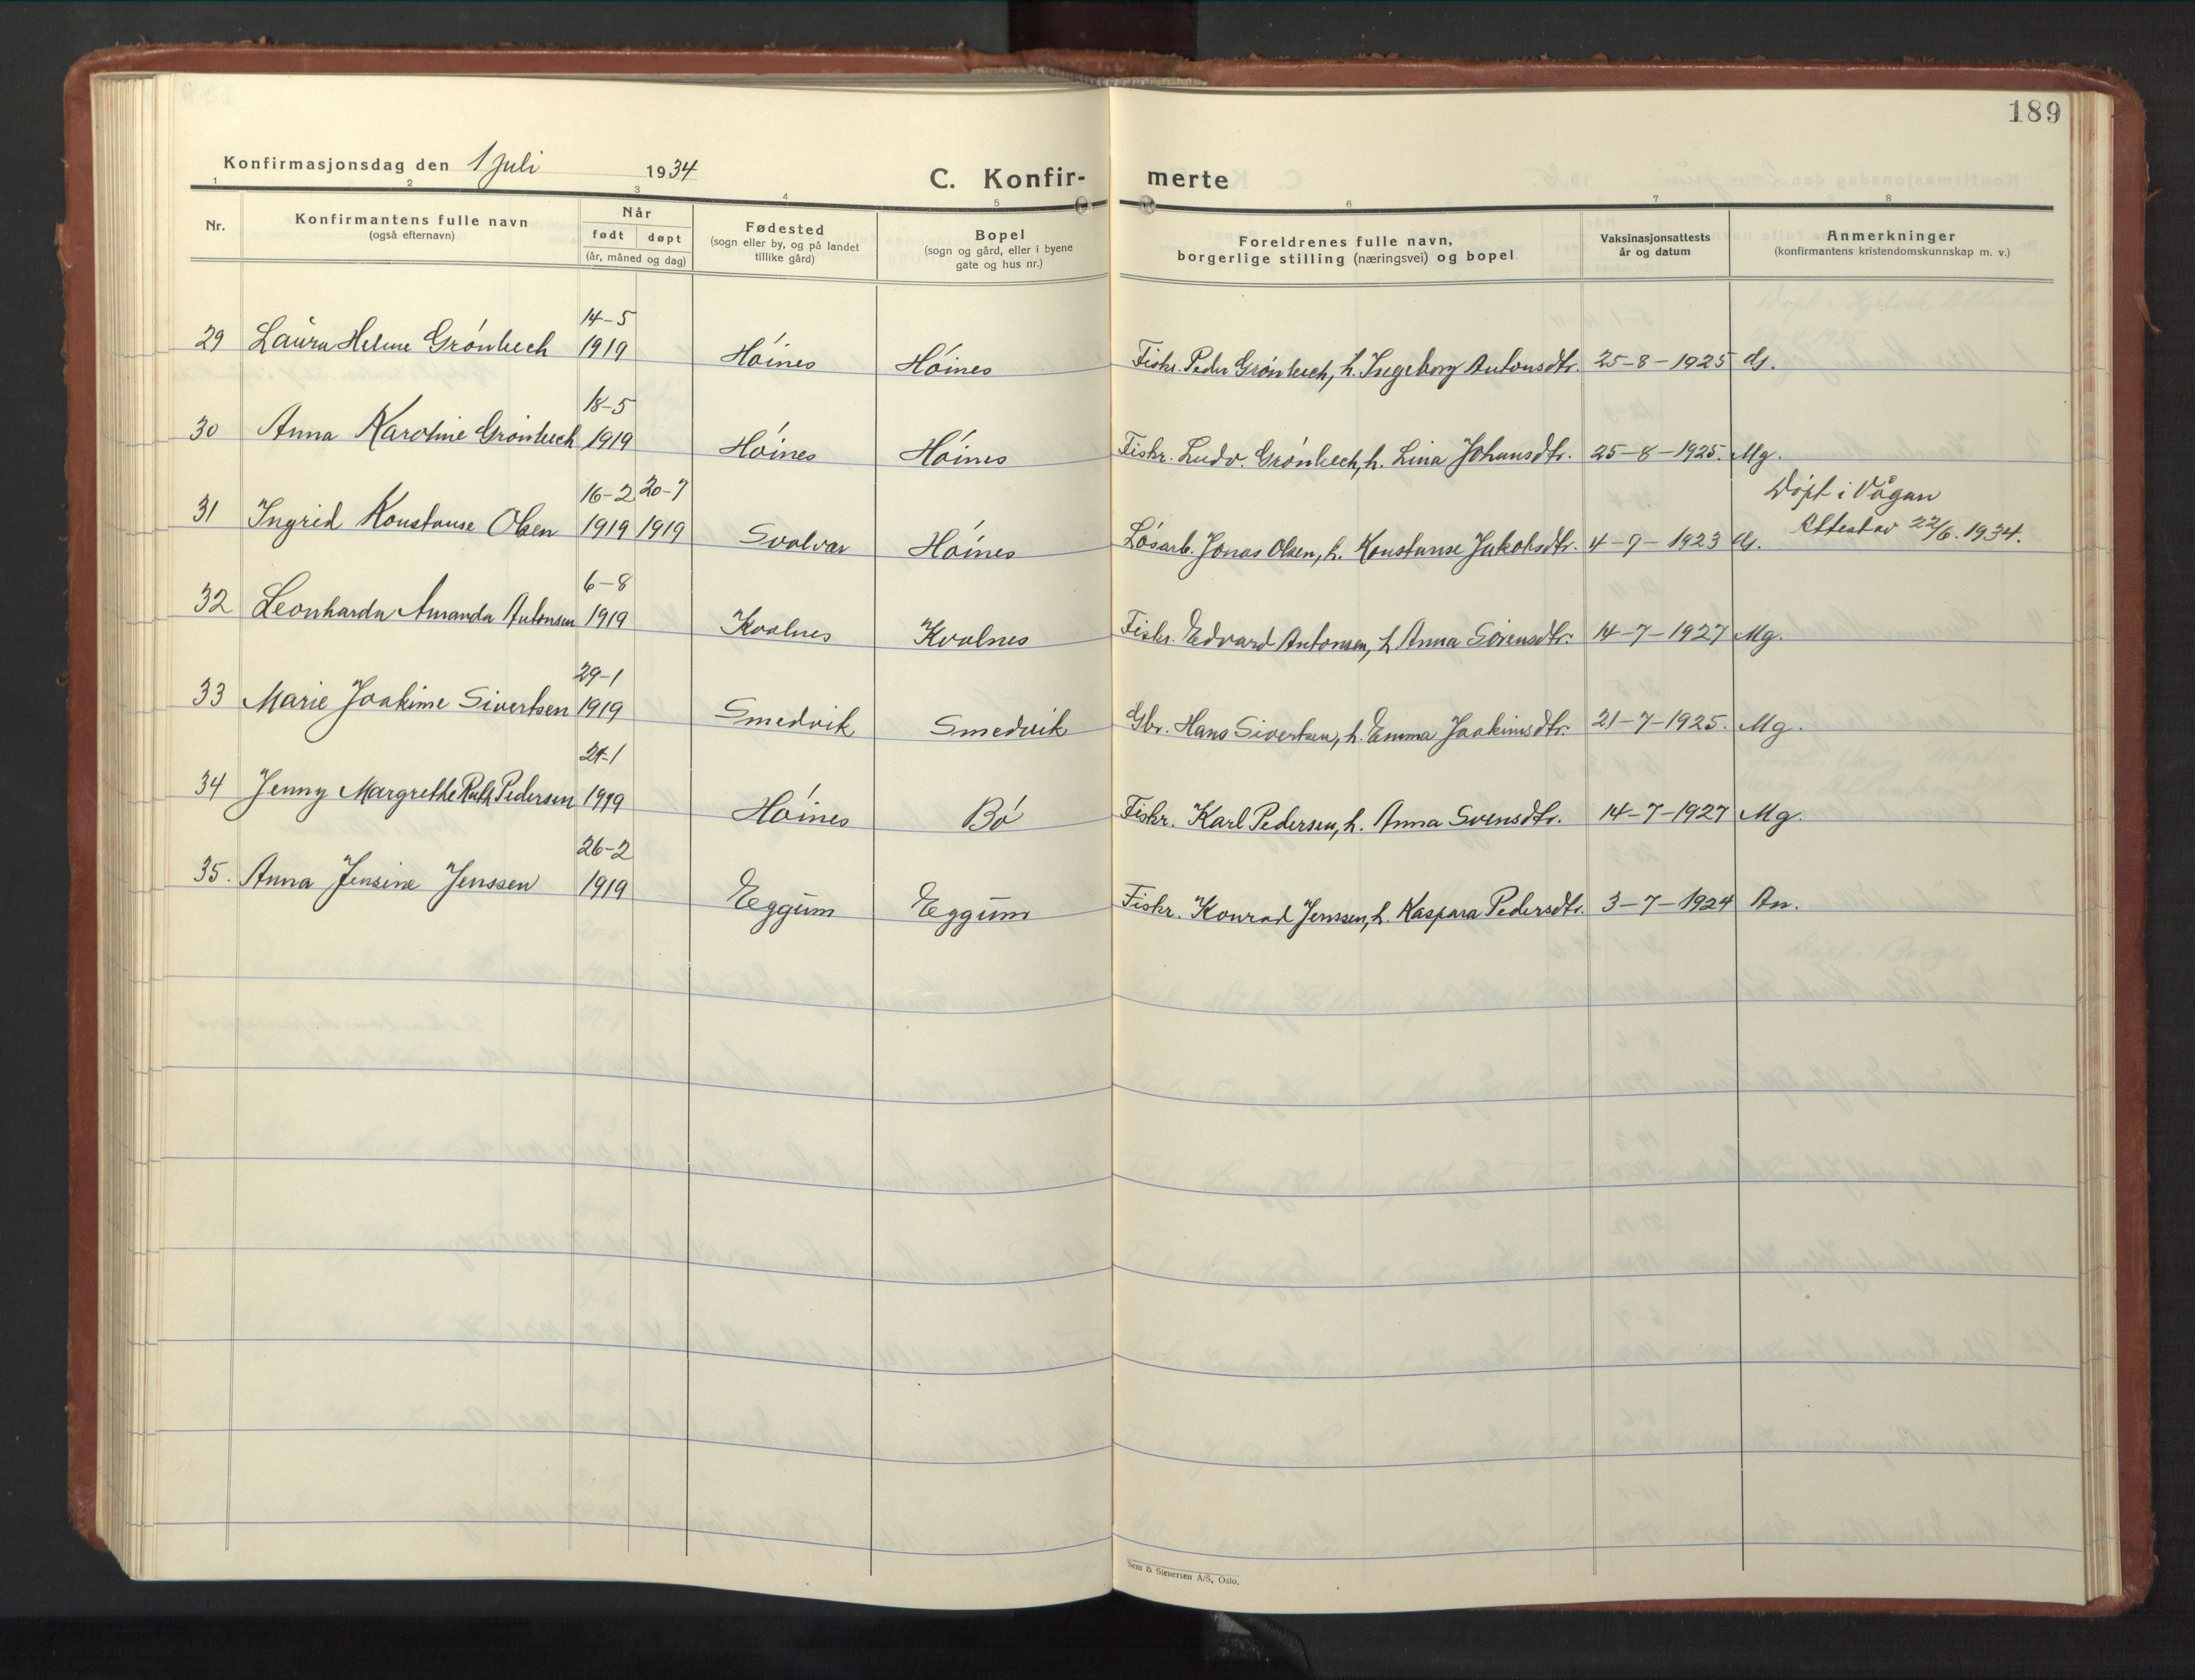 189
Konfirmasjonsdag den 1 Juli 1934
C. Konfir- merte
1 2 3 4 5 6 7 8
Nr.
Konfirmantens fulle navn
(også efternavn)
Når
født døpt
(år, måned og dag)
Fødested
(sogn eller by, og på landet
tillike gård)
Bopel
(sogn og gård, eller i byene
gate og hus nr.)
Foreldrenes fulle navn,
borgerlige stilling (næringsvei) og bopel
Vaksinasjonsattests
år og datum
Anmerkninger
(konfirmantens kristendomskunnskap m. v.)
14-5
29 Laura Helene Grønbech 1919 Høines Høines Fiskr. Peder Grønbech, h. Ingeborg Antonsdtr. 25-8-1925
18-5
30 Anna Karoline Grønbech 1919 Høines Høines Fiskr. Ludv. Grønbech, h. Lina Johansdtr. 25-8-1925. Mg.
16-2 20-7 Døpt i Vågan
31 Ingrid Konstanse Olsen 1919 1919 Svolvær Høines Løsarb. Jonas Olsen, h. Konstanse Jakobsdtr. 4-7-1923 Attest av 22/6.1934.
6-8
32 Leonharda Amanda Antonsen 1919 Kvalnes Kvalnes Fiskr. Edvard Antonsen, h Anna Sørensdtr. 14-7-1927 Mg.
29-1
33 Marie Joakime Sivertsen 1919 Smedvik Smedvik Gbr. Hans Sivertsen, h. Emma Joakimsdtr. 21-7-1925. Mg.
21-1
34 Jenny Margrethe Ruth Pedersen 1919 Høines Bø Fiskr. Karl Pedersen, h. Anna Svensdtr. 14-7-1927 Mg.
26-2
35. Anna Jensine Jenssen 1919 Eggum Eggum Fiskr. Konrad Jenssen, h. Kaspara Pedersdtr. 3-7-1924 An.
Sem & Stenersen A/S, Oslo.